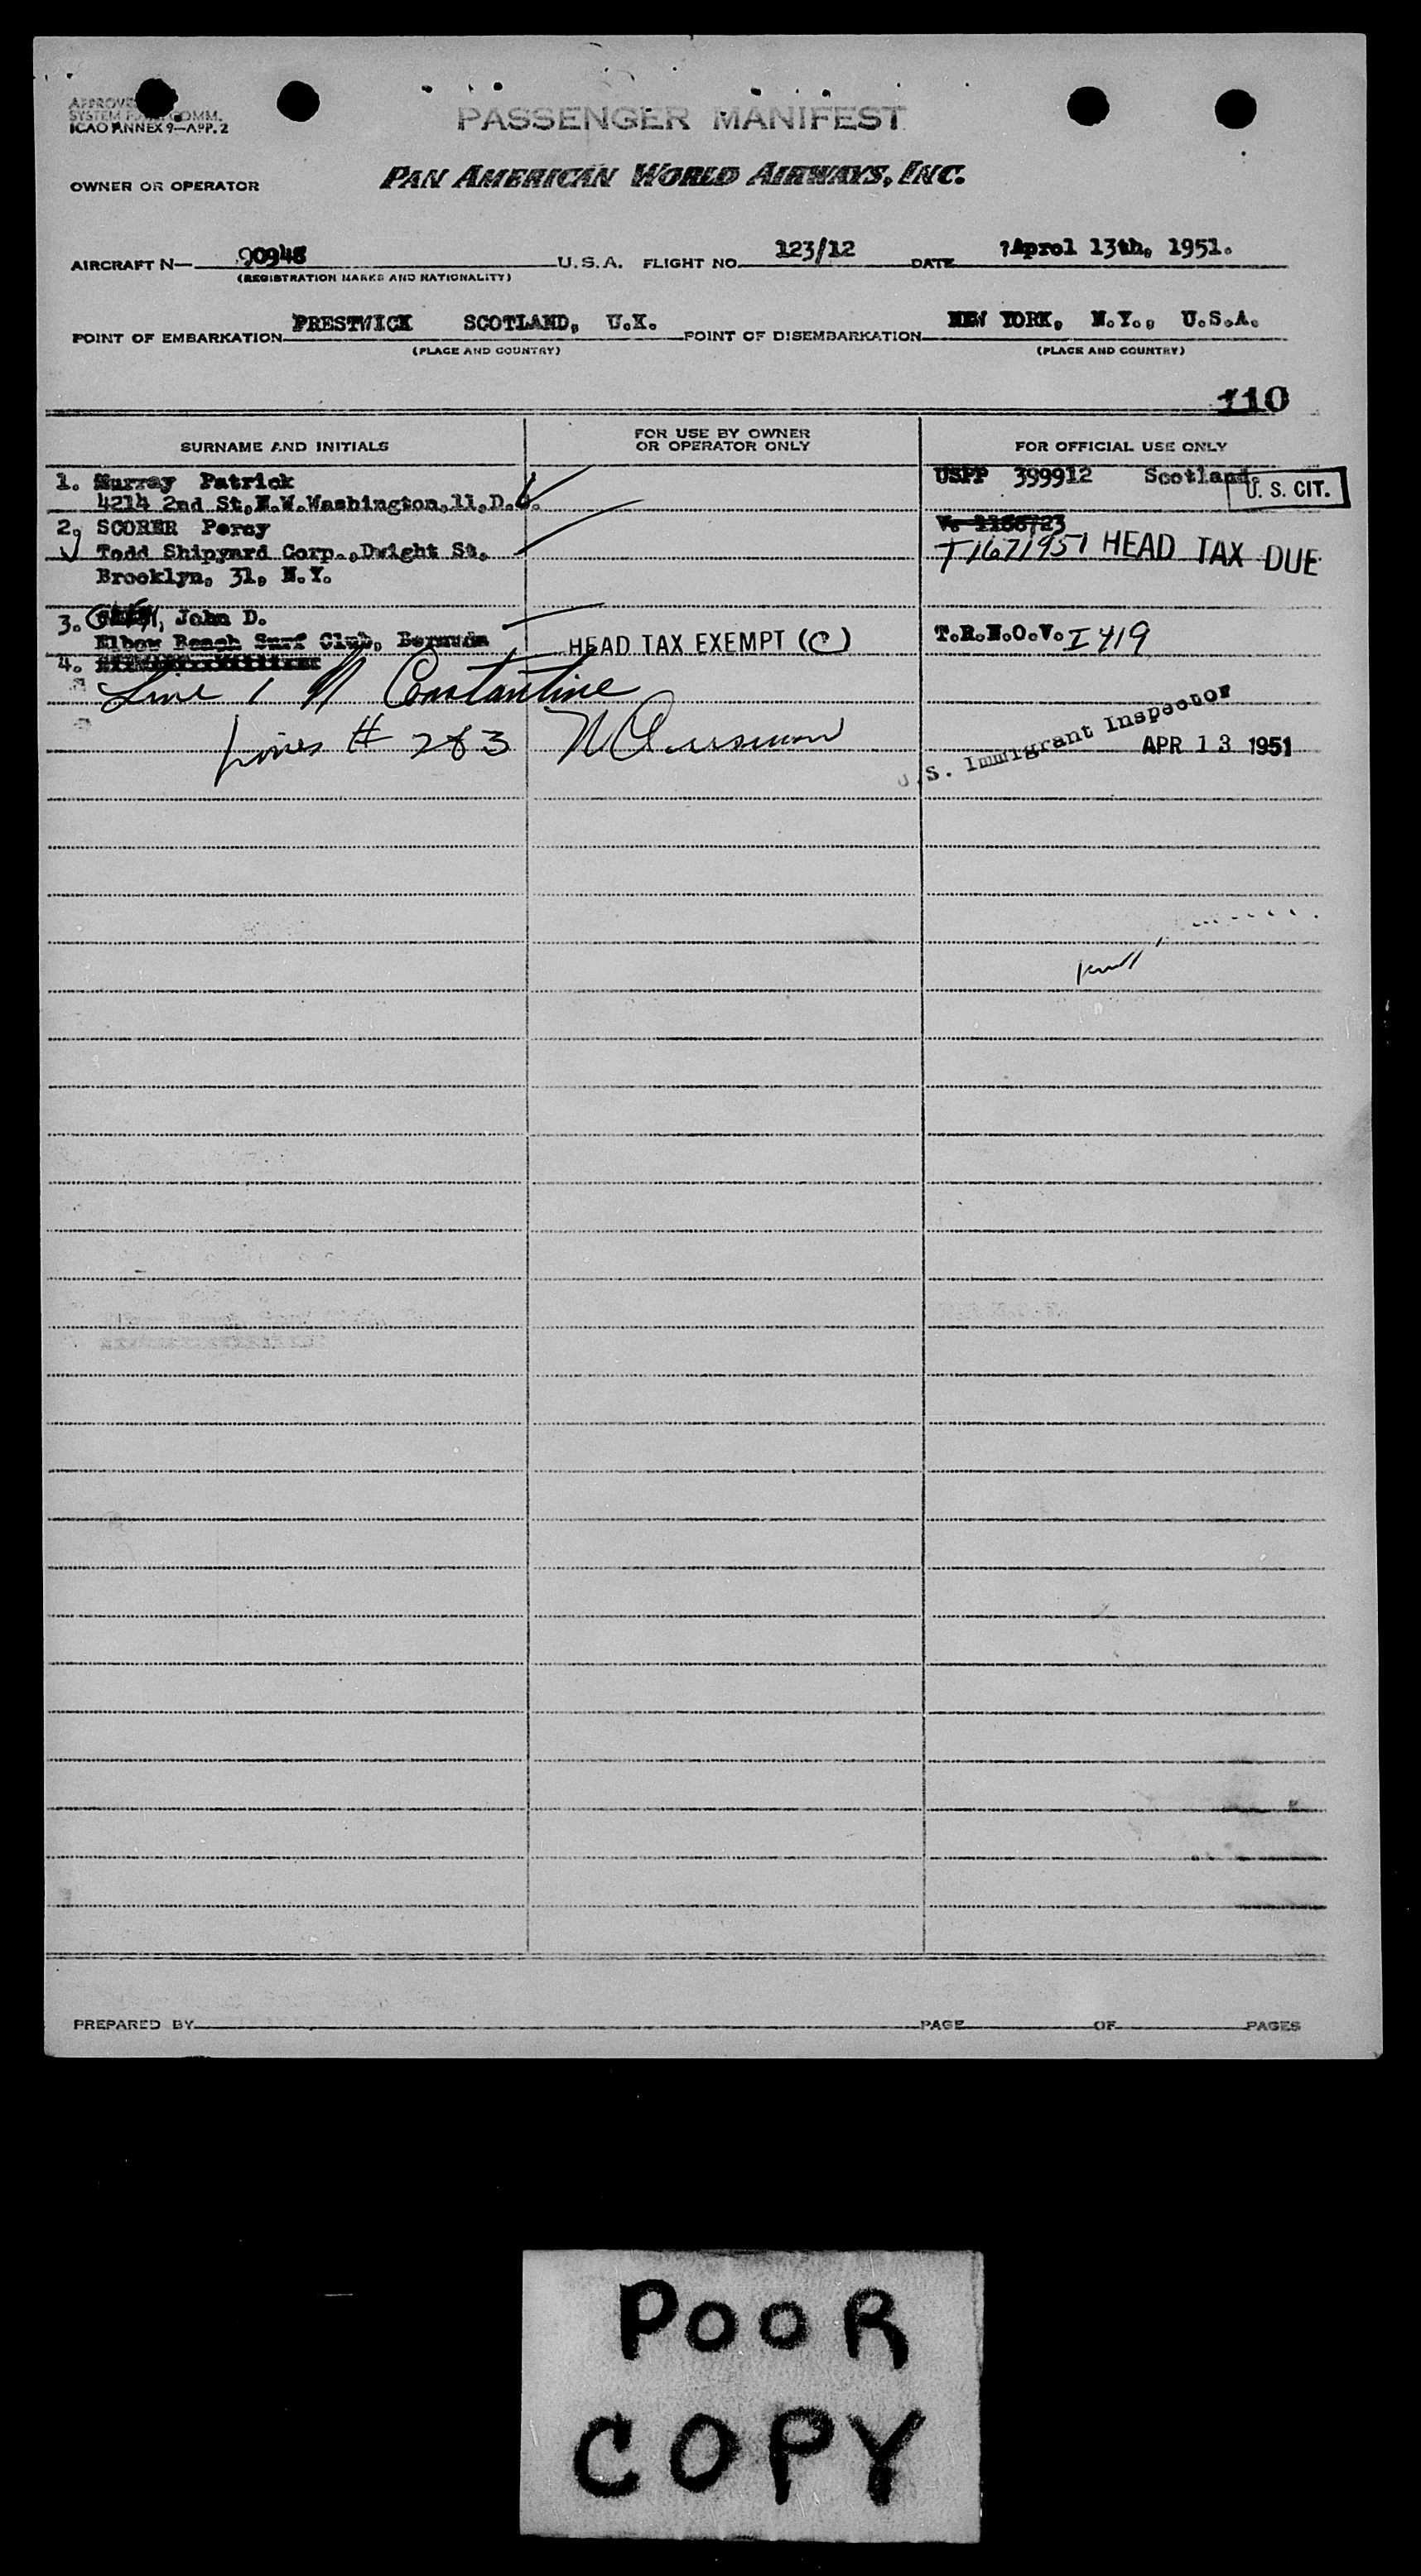 PASSENGER MANIFEST
ICAO ANNEX 9—APP. 2
OWNER OR OPERATOR PAN AMERICAN WORLD AIRWAYS, INC.
AIRCRAFT N— 90948 U.S.A. FLIGHT NO. 123/12 DATE ?Aprol 13th, 1951.
(REGISTRATION MARKS AND NATIONALITY)
POINT OF EMBARKATION PRESTWICK SCOTLAND, U.K. POINT OF DISEMBARKATION NEW YORK, N.Y., U.S.A.
(PLACE AND COUNTRY) (PLACE AND COUNTRY)
110
SURNAME AND INITIALS FOR USE BY OWNER OR OPERATOR ONLY FOR OFFICIAL USE ONLY
1. Murray Patrick USPP 399912 Scotland.
4214 2nd St,N.W.Washington,11,D.C. U. S. CIT.
2. SCORER Percy V. 1166723
Todd Shipyard Corp.,Dwight St. T1671951 HEAD TAX DUE
Brooklyn, 31, N.Y.
3. John D.
Elbow Beach Surf Club, Bermuda HEAD TAX EXEMPT (C) T.R.N.O.V. I 419
4.
Line 1 N Costantine
Lines # 2&3
U.S. Immigrant Inspector
APR 13 1951
PREPARED BY PAGE OF PAGES
POOR
COPY